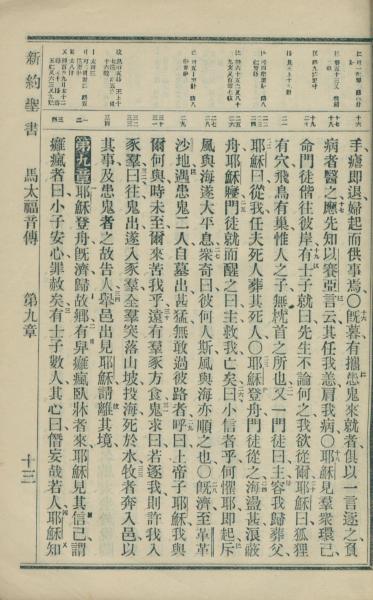 手癰即退婦起而供事焉〇既暮有攜患鬼來就者俱以一言逐之負
病者醫之應先知以賽亞言云其任我恙肩我病〇耶穌見羣衆環己
命門徒偕往彼岸有士子就曰先生不論何之我欲從爾耶穌曰狐狸
有穴飛鳥有巢惟人之子無枕首之所也又一門徒曰主容我歸葬父
耶穌曰從我任夫死人葬其死人〇耶穌登舟門徒從之海颶甚浪蔽
舟耶穌寢門徒就而醒之曰主救我亡矣曰小信者乎何懼耶即起斥
風與海遂大平息衆奇曰彼何人斯風與海亦順之也〇既濟至革革
沙地遇患鬼二人自墓出甚猛無敢過彼路者呼曰上帝子耶穌我與
爾何與時未至爾來苦我乎遠有羣豕方食鬼求曰若逐我則許我入
豕羣曰往鬼出遂入豕羣全羣突落山坡投海死於水牧者奔入邑以
其事及患鬼者之故告人舉邑出見耶穌請離其境
第九章耶穌登舟既濟歸故鄉有舁癱瘋臥牀者來耶穌見其信己謂
癱瘋者曰小子安心罪赦矣有士子數人其心曰僭妄哉若人耶穌知
新約聖書 馬太福音傳 第九章 十三